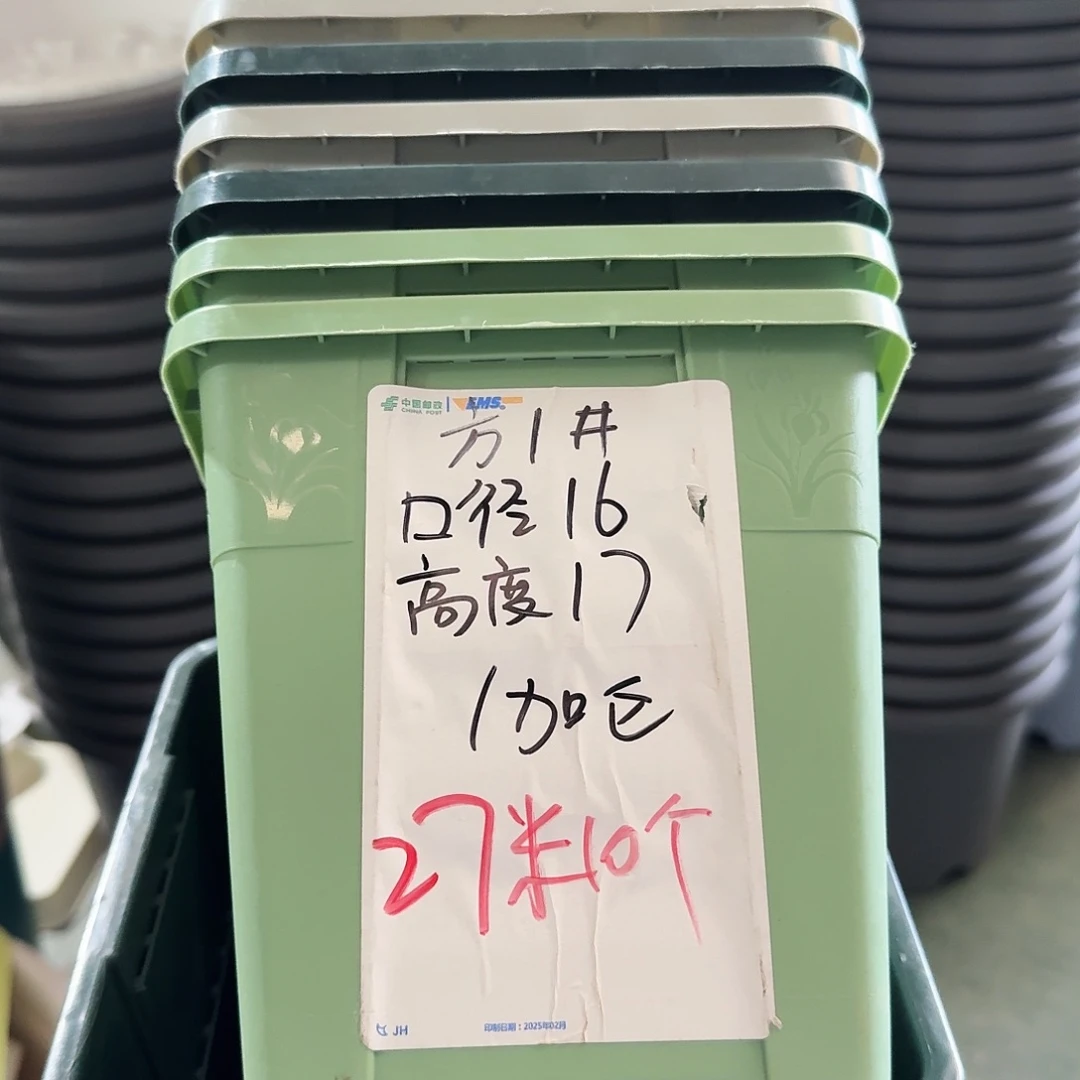 中国邮政 CHINA POST EMS
方1#
口径16
高度17
1加仑
27米10个
JH 印制日期：2025年02月